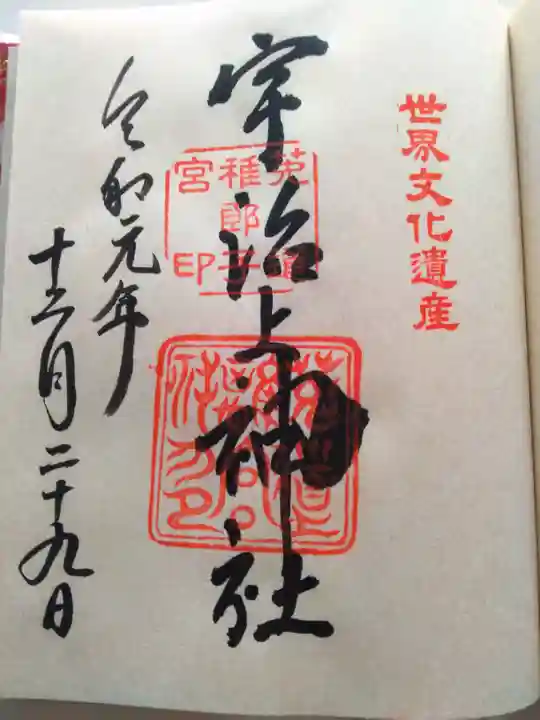 世界文化遺産
宇治上神社
菟道
稚郎子
宮印
令和元年
十二月二十九日